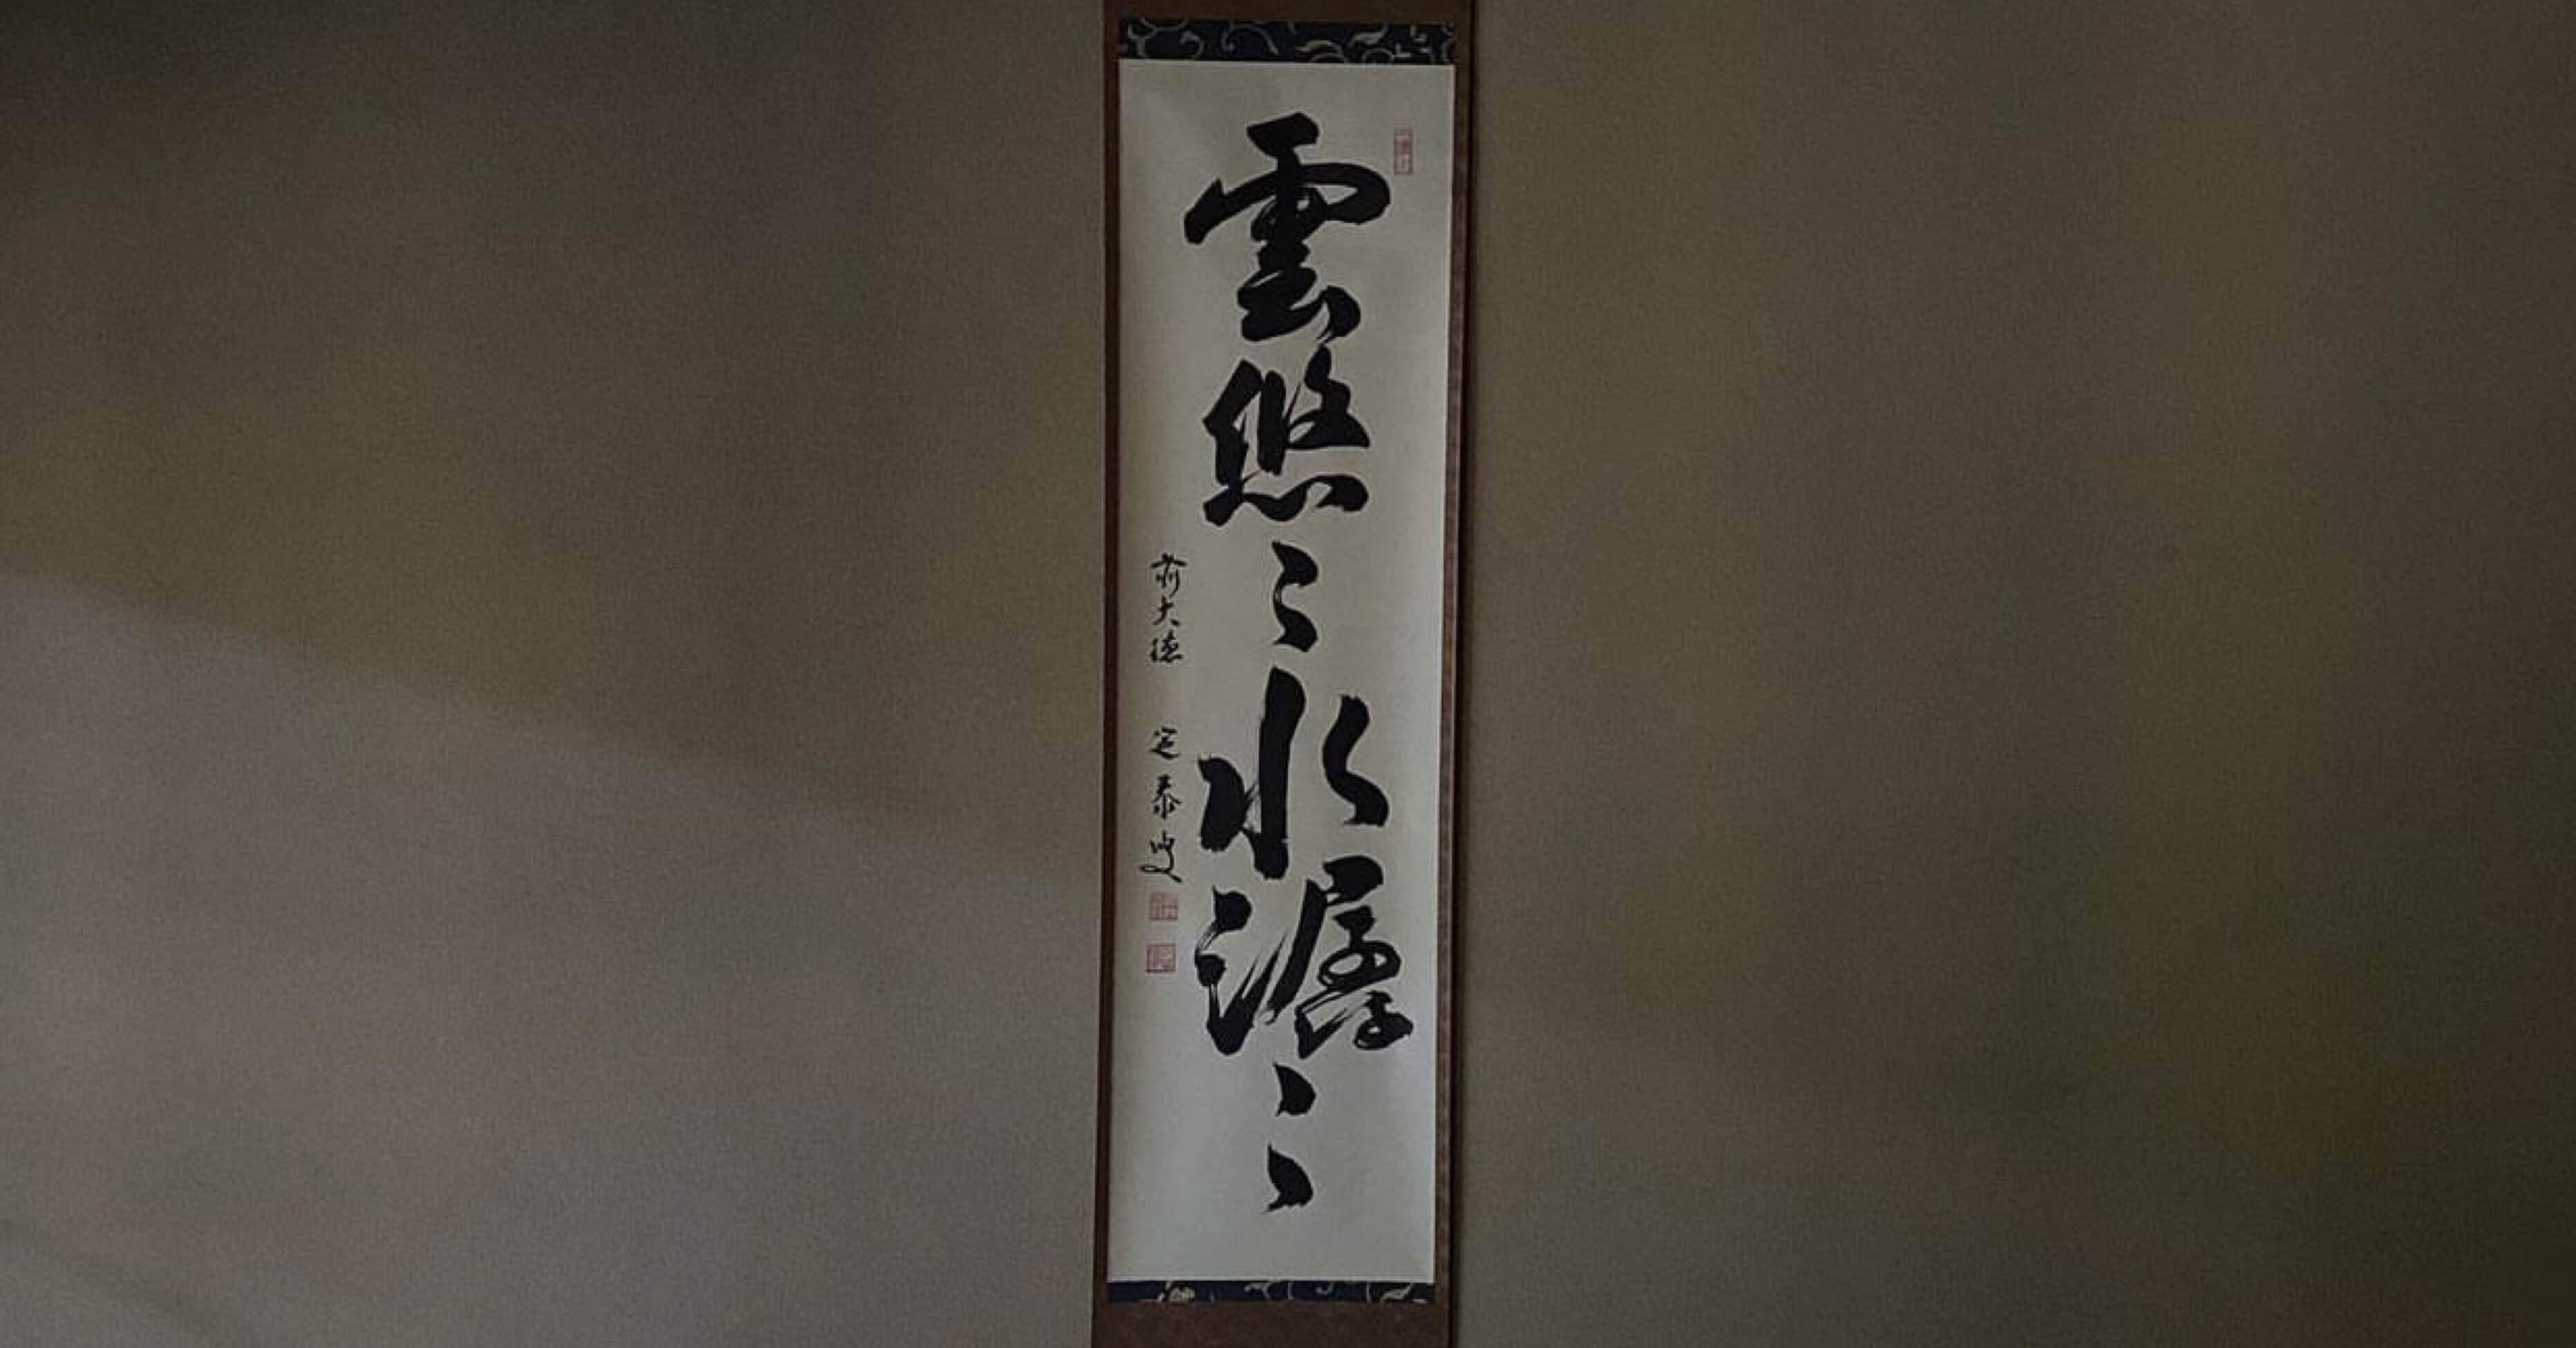 雲悠々水潺々
前大徳 定泰叟